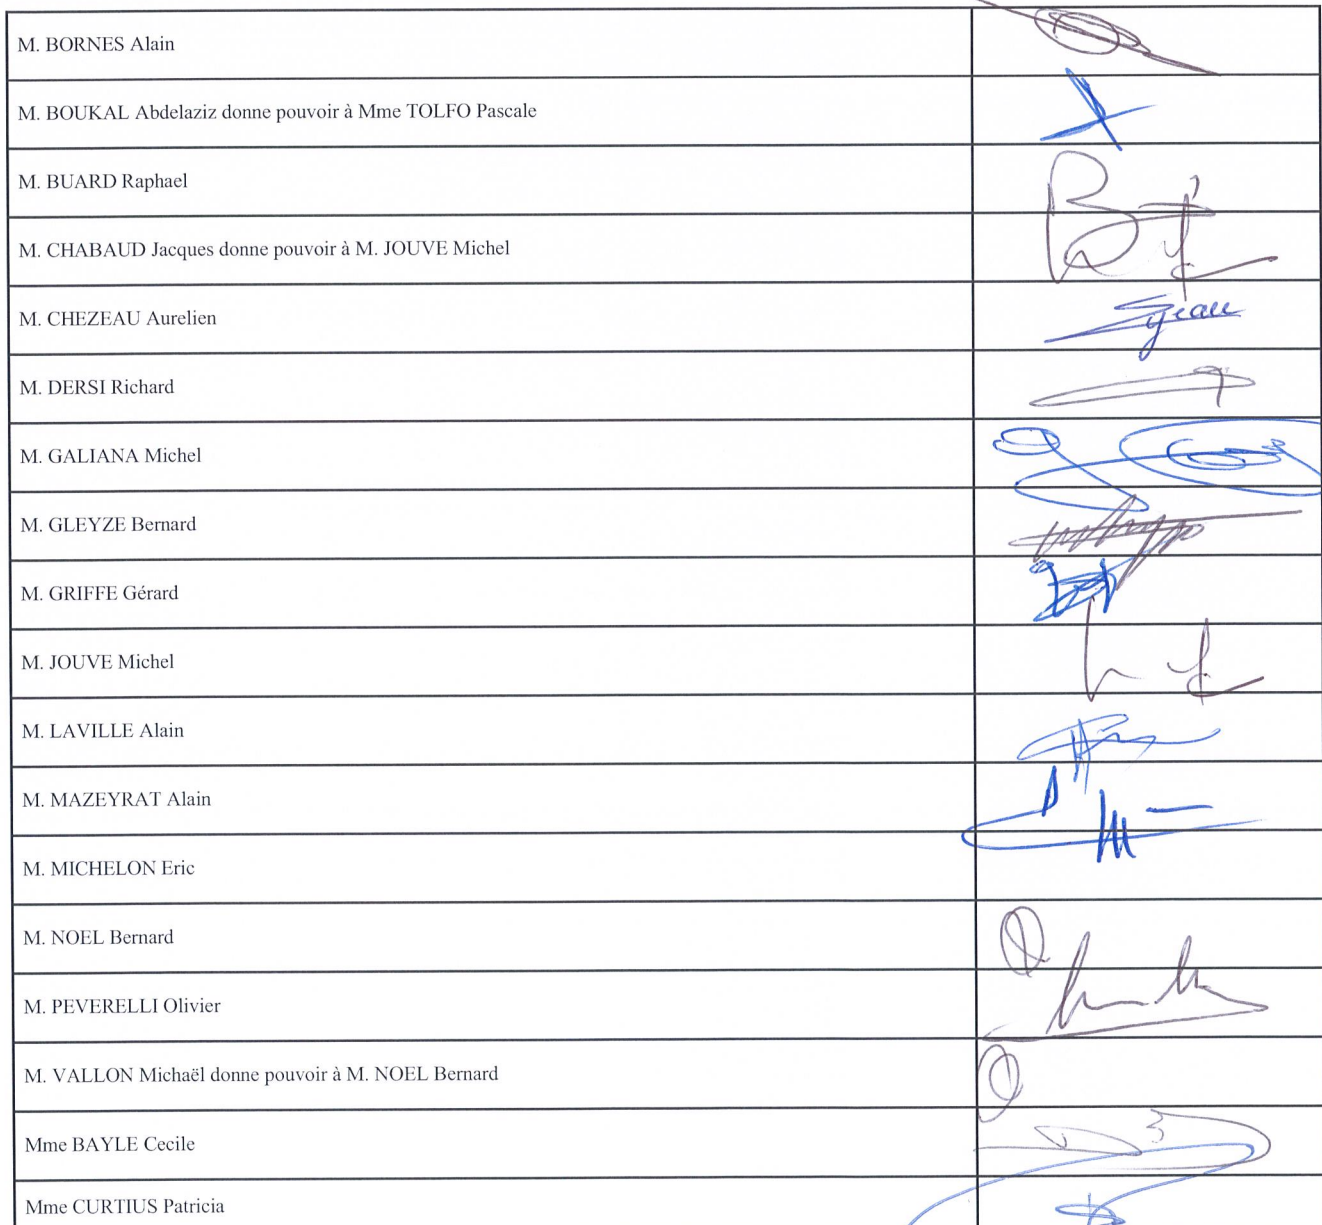 M. BORNES Alain
M. BOUKAL Abdelaziz donne pouvoir à Mme TOLFO Pascale
M. BUARD Raphael
M. CHABAUD Jacques donne pouvoir à M. JOUVE Michel
M. CHEZEAU Aurelien
M. DERSI Richard
M. GALIANA Michel
M. GLEYZE Bernard
M. GRIFFE Gérard
M. JOUVE Michel
M. LAVILLE Alain
M. MAZEYRAT Alain
M. MICHELON Eric
M. NOEL Bernard
M. PEVERELLI Olivier
M. VALLON Michaël donne pouvoir à M. NOEL Bernard
Mme BAYLE Cecile
Mme CURTIUS Patricia